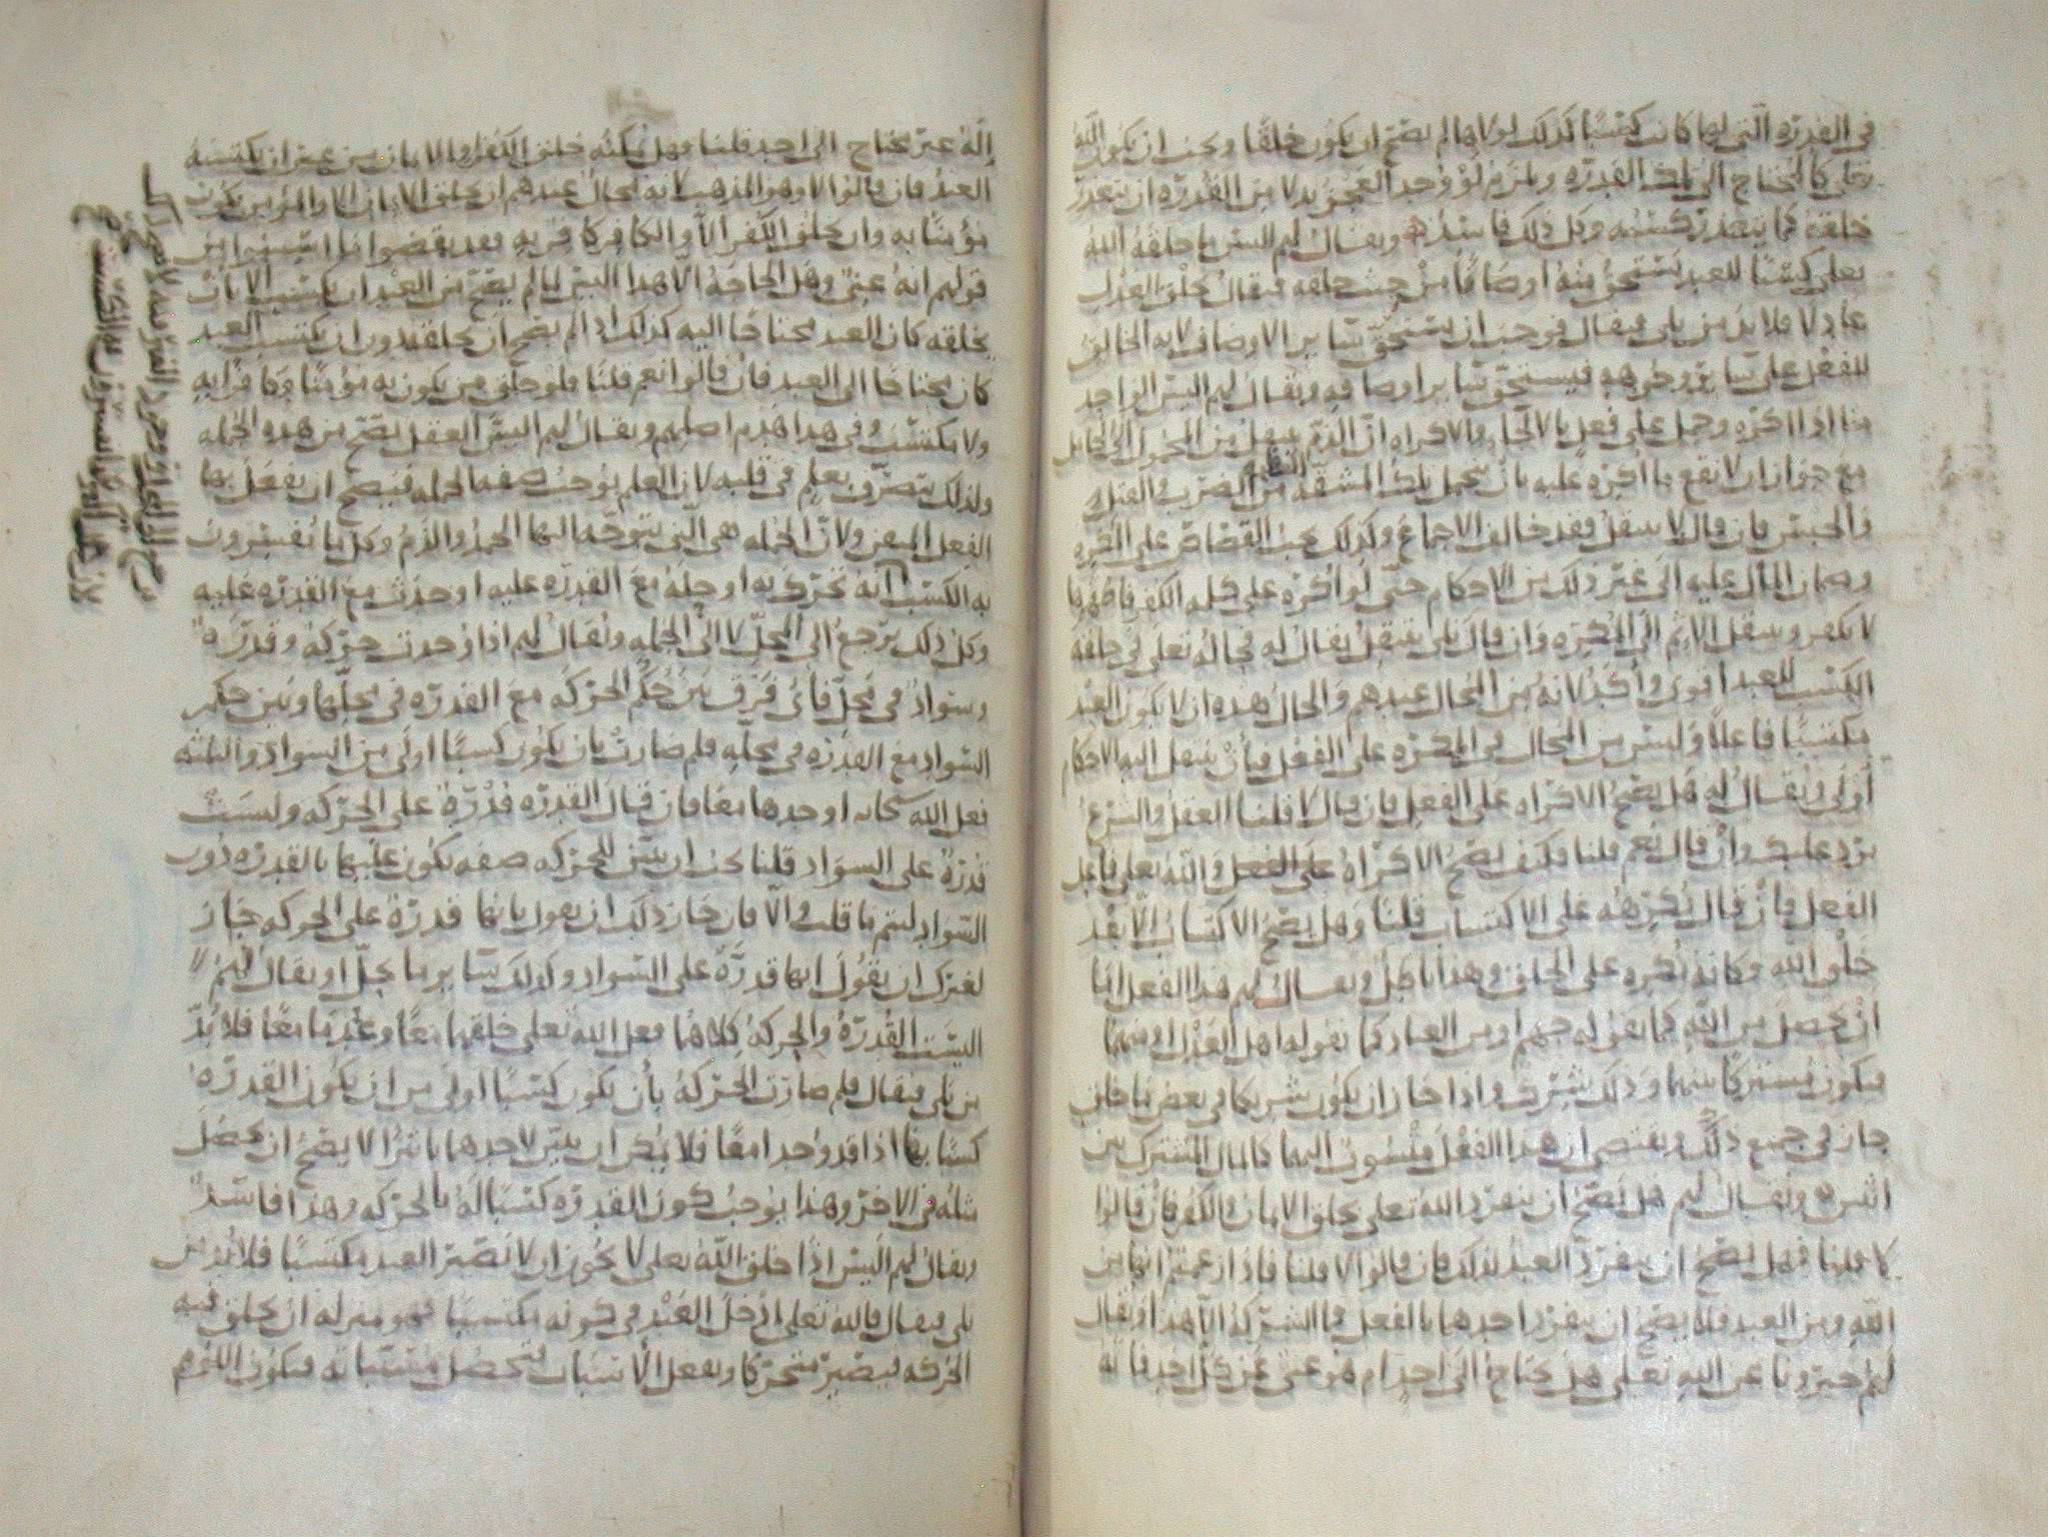 في القدرة التي لها كانت كسبا كذلك لولاها لم يصح ان يكون خلقا ويجب ان يكون الله
تعلى كالمحتاج الى تلك القدرة ويلزم لو وجد العجز بدلا من القدرة ان يتعذر
خلقه كما يتعذر كسبه وكل ذلك فاسد ويقال لهم اليس ما خلقه الله
تعلى كسبا للعبد يستحق منه اوصافا من حيث خلقه فيقال بخلق العدل
عادلا فلا بد من بلى فيقال فوجب ان يستحق سائر الاوصاف لانه الخالق
للفعل على سائر وجوهه فيستحق سائر اوصافه ويقال لهم اليس الواحد
منا اذا اكره وحمل على فعل بالالجاء والاكراه ان الذم ينتقل من المحمول الى الحامل
مع جواز ان لا يقع ما اكره عليه بان يتحمل تلك المشقة من الضرب والقتل
والحبس فان قال لا ينتقل فقد خالف الاجماع وكذلك يجب القصاص على المكره
وضمان المال عليه الى غير ذلك من الاحكام حتى لو اكره على كلمة الكفر فاظهرها
لا يكفر وينتقل الاثم الى المكره وان قال بلى ينتقل يقال له فحاله تعلى في خلقه
الكسب للعبد اقوى وأكد لانه من المحال عندهم والحال هذه ان لا يكون العبد
مكتسبا فاعلا وليس من المحال في المكره على الفعل فبأن ينتقل اليه الاحكام
أولى ويقال له هل يصح الاكراه على الفعل فان قال لا قلنا العقل والشرع
يرد عليك وان قال نعم قلنا فكيف يصح الاكراه على الفعل والله تعلى فاعل
الفعل فان قال يكرهه على الاكتساب قلنا وهل يصح الاكتساب الا بعد
خلق الله وكانه يكره على الخلق وهذا باطل ويقال لهم هذا الفعل اما
ان يحصل من الله كما يقوله جهم او من العباد كما يقوله اهل العدل او منهما
فيكون مشتركا بينهما وذلك شرك واذا جاز ان يكون شريكا في بعض ما خلق
جاز في جميع ذلك ويقتضي ان هذا الفعل منسوب اليهما كالمال المشترك بين
اثنين ويقال لهم هل يصح ان يتفرد الله تعلى بخلق الايمان والكفر فان قالوا
لا قلنا فهل يصح ان يتفرد العبد بذلك فان قالوا لا قلنا فاذا زعمتم انها من
الله ومن العبد فلا يصح ان يتفرد احدهما بالفعل فما الشركة الا هذا ويقال
لهم خبرونا عن الله تعلى هل يحتاج الى احد ام هو غني عن كل احد فانه
إله غير محتاج الى احد قلنا وهل يمكنه خلق الكفر والايمان من غير ان يكتسبه
العبد فان قالوا لا وهو المذهب لانه محال عندهم ان يخلق الايمان الا والمؤمن يكون
مؤمنا به وان يخلق الكفر الا والكافر كافر به فقد نقضوا ما اثبتوا من
قولهم انه غني وهل الحاجة الا هذا اليس لما لم يصح من العبد ان يكتسب الا بأن
يخلقه كان العبد محتاجا اليه كذلك اذا لم يصح ان يخلقه دون ان يكتسب العبد
كان محتاجا الى العبد فان قالوا نعم قلنا فلو خلق من يكون به مؤمنا وكافرا به
ولا مكتسب وفي هذا هدم اصلهم ويقال لهم اليس الفعل يصح من هذه الجملة
ولذلك يتصرف بعلم في قلبه لان العلم يوجب صفة الجملة فيصح ان يفعل بها
الفعل المتقن ولان الجملة هي التي يتوجه اليها الحمد والذم وكل ما يفسرون
به الكسب انه تحرك به او حله مع القدرة عليه او حدث مع القدرة عليه
وكل ذلك يرجع الى المحل لا الى الجملة ويقال لهم اذا وجدت حركة وقدرة
وسواد في محل فاي فرق بين حكم الحركة مع القدرة في محلها وبين حكم
السواد مع القدرة في محله فلم صارت بان يكون كسبا اولى من السواد والثلثة
فعل الله سبحانه اوجدها معا فان قال القدرة قدرة على الحركة وليست
قدرة على السواد قلنا يجب ان يتبين للحركة صفة يكون عليها بالقدرة دون
السواد ليتم ما قلت والا فان جاز ذلك ان يقول بانها قدرة على الحركة جاز
لغيرك ان يقول انها قدرة على السواد وكذلك سائر ما يحل او يقال لهم
اليست القدرة والحركة كلاهما فعل الله تعلى خلقهما معا وعدما معا فلا بد
من بلى فيقال فلم صارت الحركة بأن يكون كسبا اولى من ان يكون القدرة
كسبا بها اذا قد وجدا معا فلا يمكن ان يتبين لاحدهما تاثيرا لا يصح ان يحصل
مثله في الاخر وهذا يوجب كون القدرة كسبا له بالحركة وهذا فاسد
ويقال لهم اليس اذا خلق الله تعلى لا يجوز ان لا يصير العبد مكتسبا فلا بد من
بلى فيقال فالله تعلى ادخل العبد في كونه مكتسبا فهو بمنزلة ان يخلق فيه
الحركة فيصير متحركا ويفعل الاسباب فتحصل مسبباته فيكون اللوم